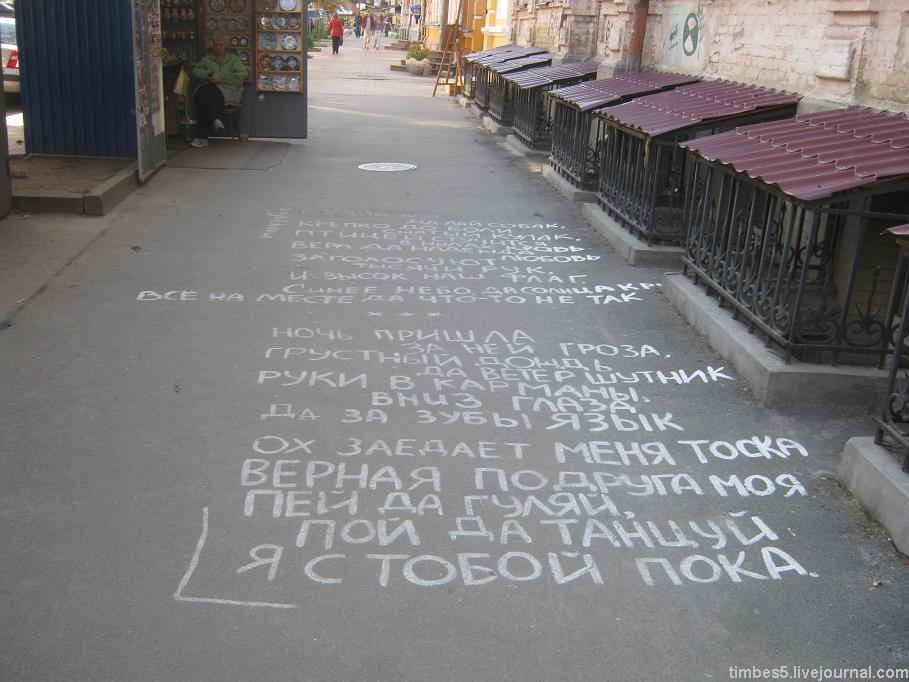 КРЕПКО СОБАК,
КУЛАК,
ВЕРА ДА
ЛЮБОВЬ
ЗАГОЛОСУЮТ
ТЫСЯЧИ РУК,
И ВЫСОК НАШ ФЛАГ
СИНЕЕ НЕБО, ДА СОЛНЦА
ВСЁ НА МЕСТЕ ДА ЧТО-ТО НЕ ТАК
* * *
НОЧЬ ПРИШЛА
ЗА НЕЙ ГРОЗА,
ГРУСТНЫЙ ДОЖДЬ
ДА ВЕТЕР ШУТНИК
РУКИ В КАРМАНЫ,
ВНИЗ ГЛАЗА,
ДА ЗА ЗУБЫ ЯЗЫК
ОХ ЗАЕДАЕТ МЕНЯ ТОСКА
ВЕРНАЯ ПОДРУГА МОЯ
ПЕЙ ДА ГУЛЯЙ,
ПОЙ ДА ТАНЦУЙ
Я С ТОБОЙ ПОКА.
timbes5.livejournal.com